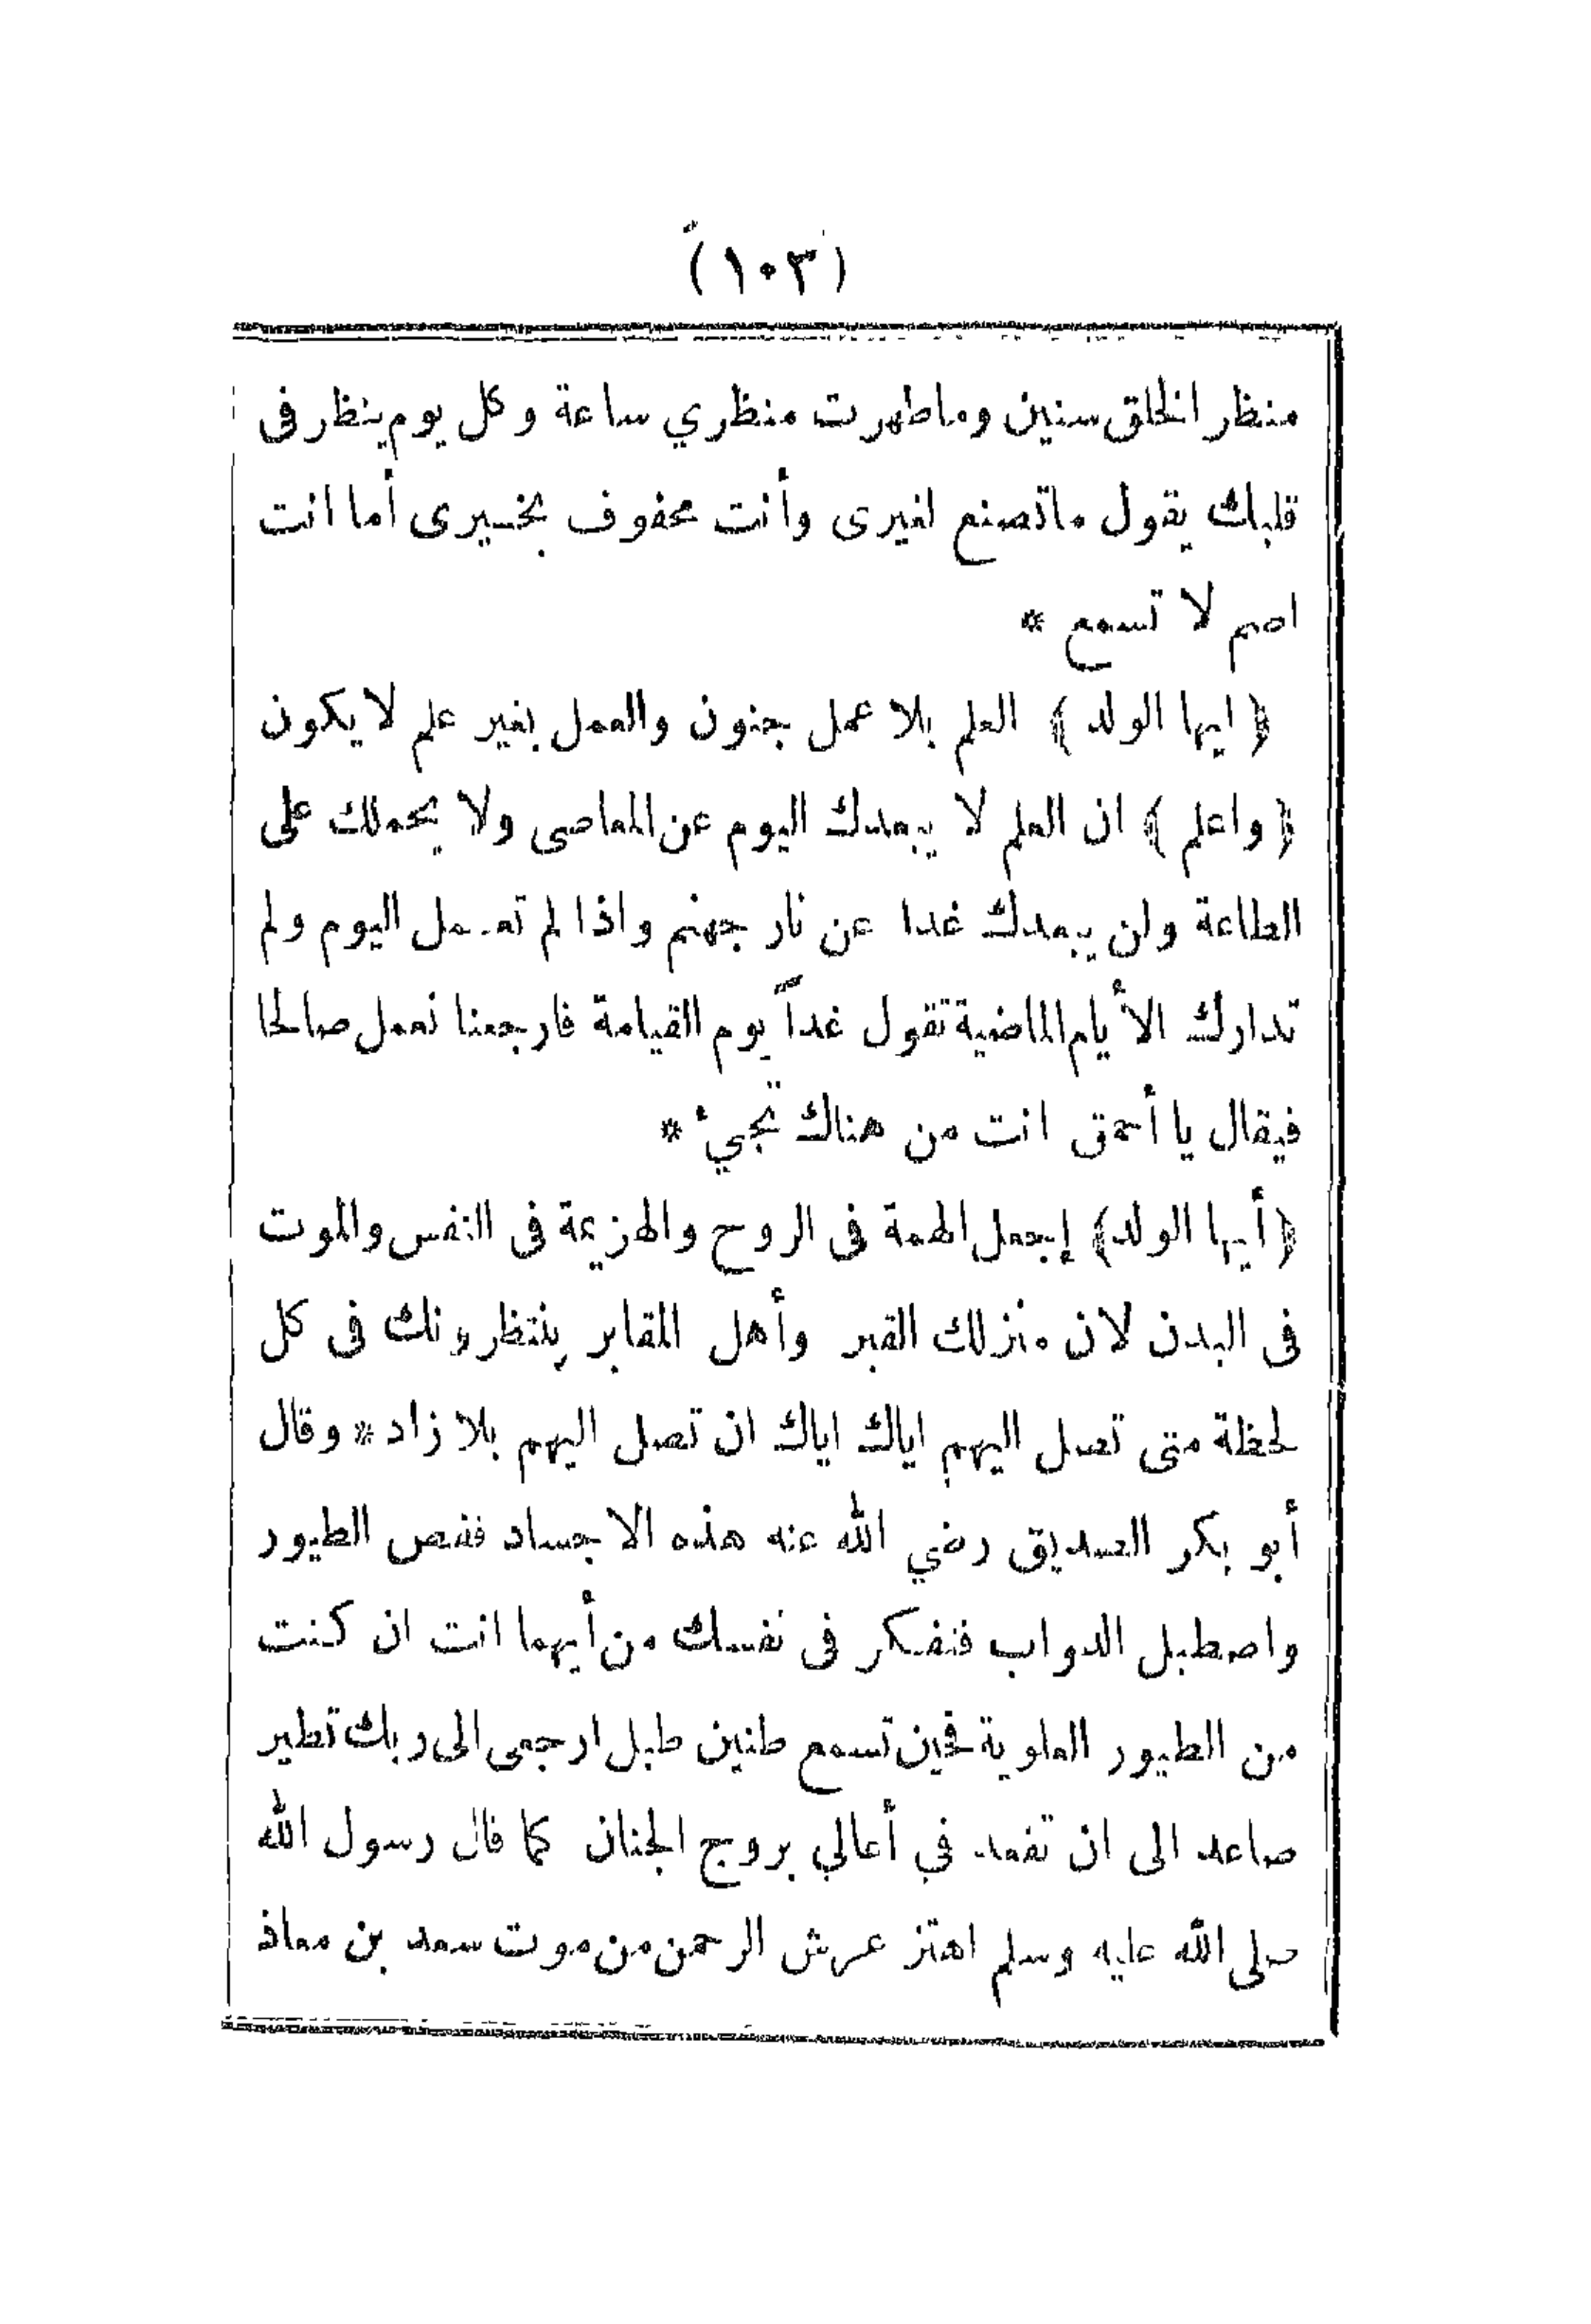 (١٠٣)
منظر الخلق سنين وماطهرت منظري ساعة وكل يوم ينظر فى
قلبك يقول ماتصنع لغيرى وأنت محفوف بخيرى أما انت
اصم لا تسمع *
﴿ ايها الولد ﴾ العلم بلا عمل جنون والعمل بغير علم لا يكون
﴿ واعلم ﴾ ان العلم لا يبعدك اليوم عن المعاصى ولا يحملك على
الطاعة ولن يبعدك غدا عن نار جهنم واذا لم تعمل اليوم ولم
تدارك الأيام الماضية تقول غداً يوم القيامة فارجعنا نعمل صالحا
فيقال يا أحمق انت من هناك تجيئ *
﴿ أيها الولد﴾ إجعل الهمة فى الروح والهزيمة فى النفس والموت
فى البدن لان منزلك القبر وأهل المقابر ينتظرونك فى كل
لحظة متى تصل اليهم اياك اياك ان تصل اليهم بلا زاد * وقال
أبو بكر الصديق رضي الله عنه هذه الاجساد قفص الطيور
واصطبل الدواب فتفكر فى نفسك من أيهما انت ان كنت
من الطيور العلوية فحين تسمع طنين طبل ارجعى الى ربك تطير
صاعد الى ان تقعد في أعالي بروج الجنان كما قال رسول الله
صلى الله عليه وسلم اهتز عرش الرحمن من موت سعد بن معاذ